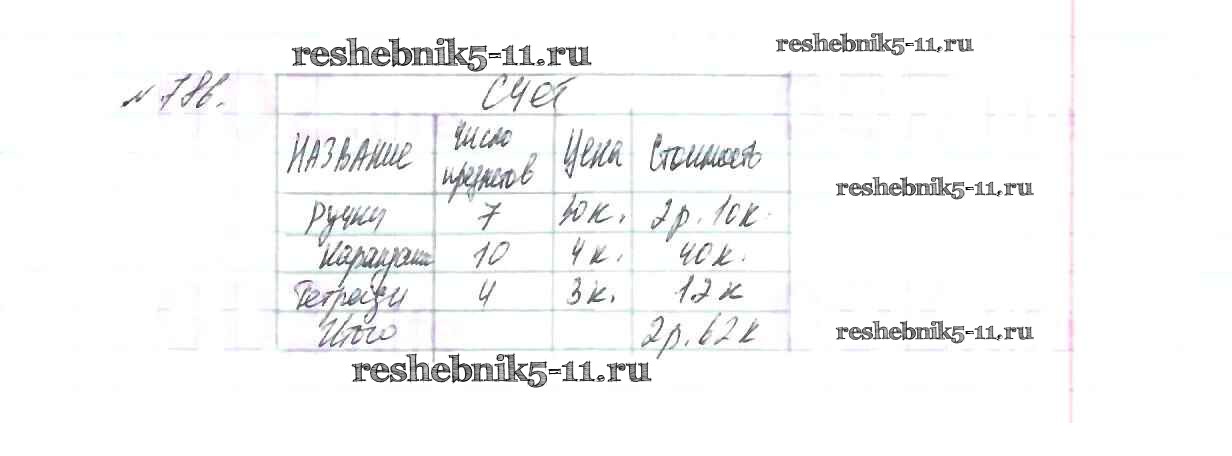 reshebnik5-11.ru
reshebnik5-11.ru
№ 786.
Счёт
Название Число предметов Цена Стоимость
reshebnik5-11.ru
Ручки 7 30к. 2р. 10к.
Карандаши 10 4к. 40к.
Тетради 4 3к. 12к
Итого 2р. 62к
reshebnik5-11.ru
reshebnik5-11.ru